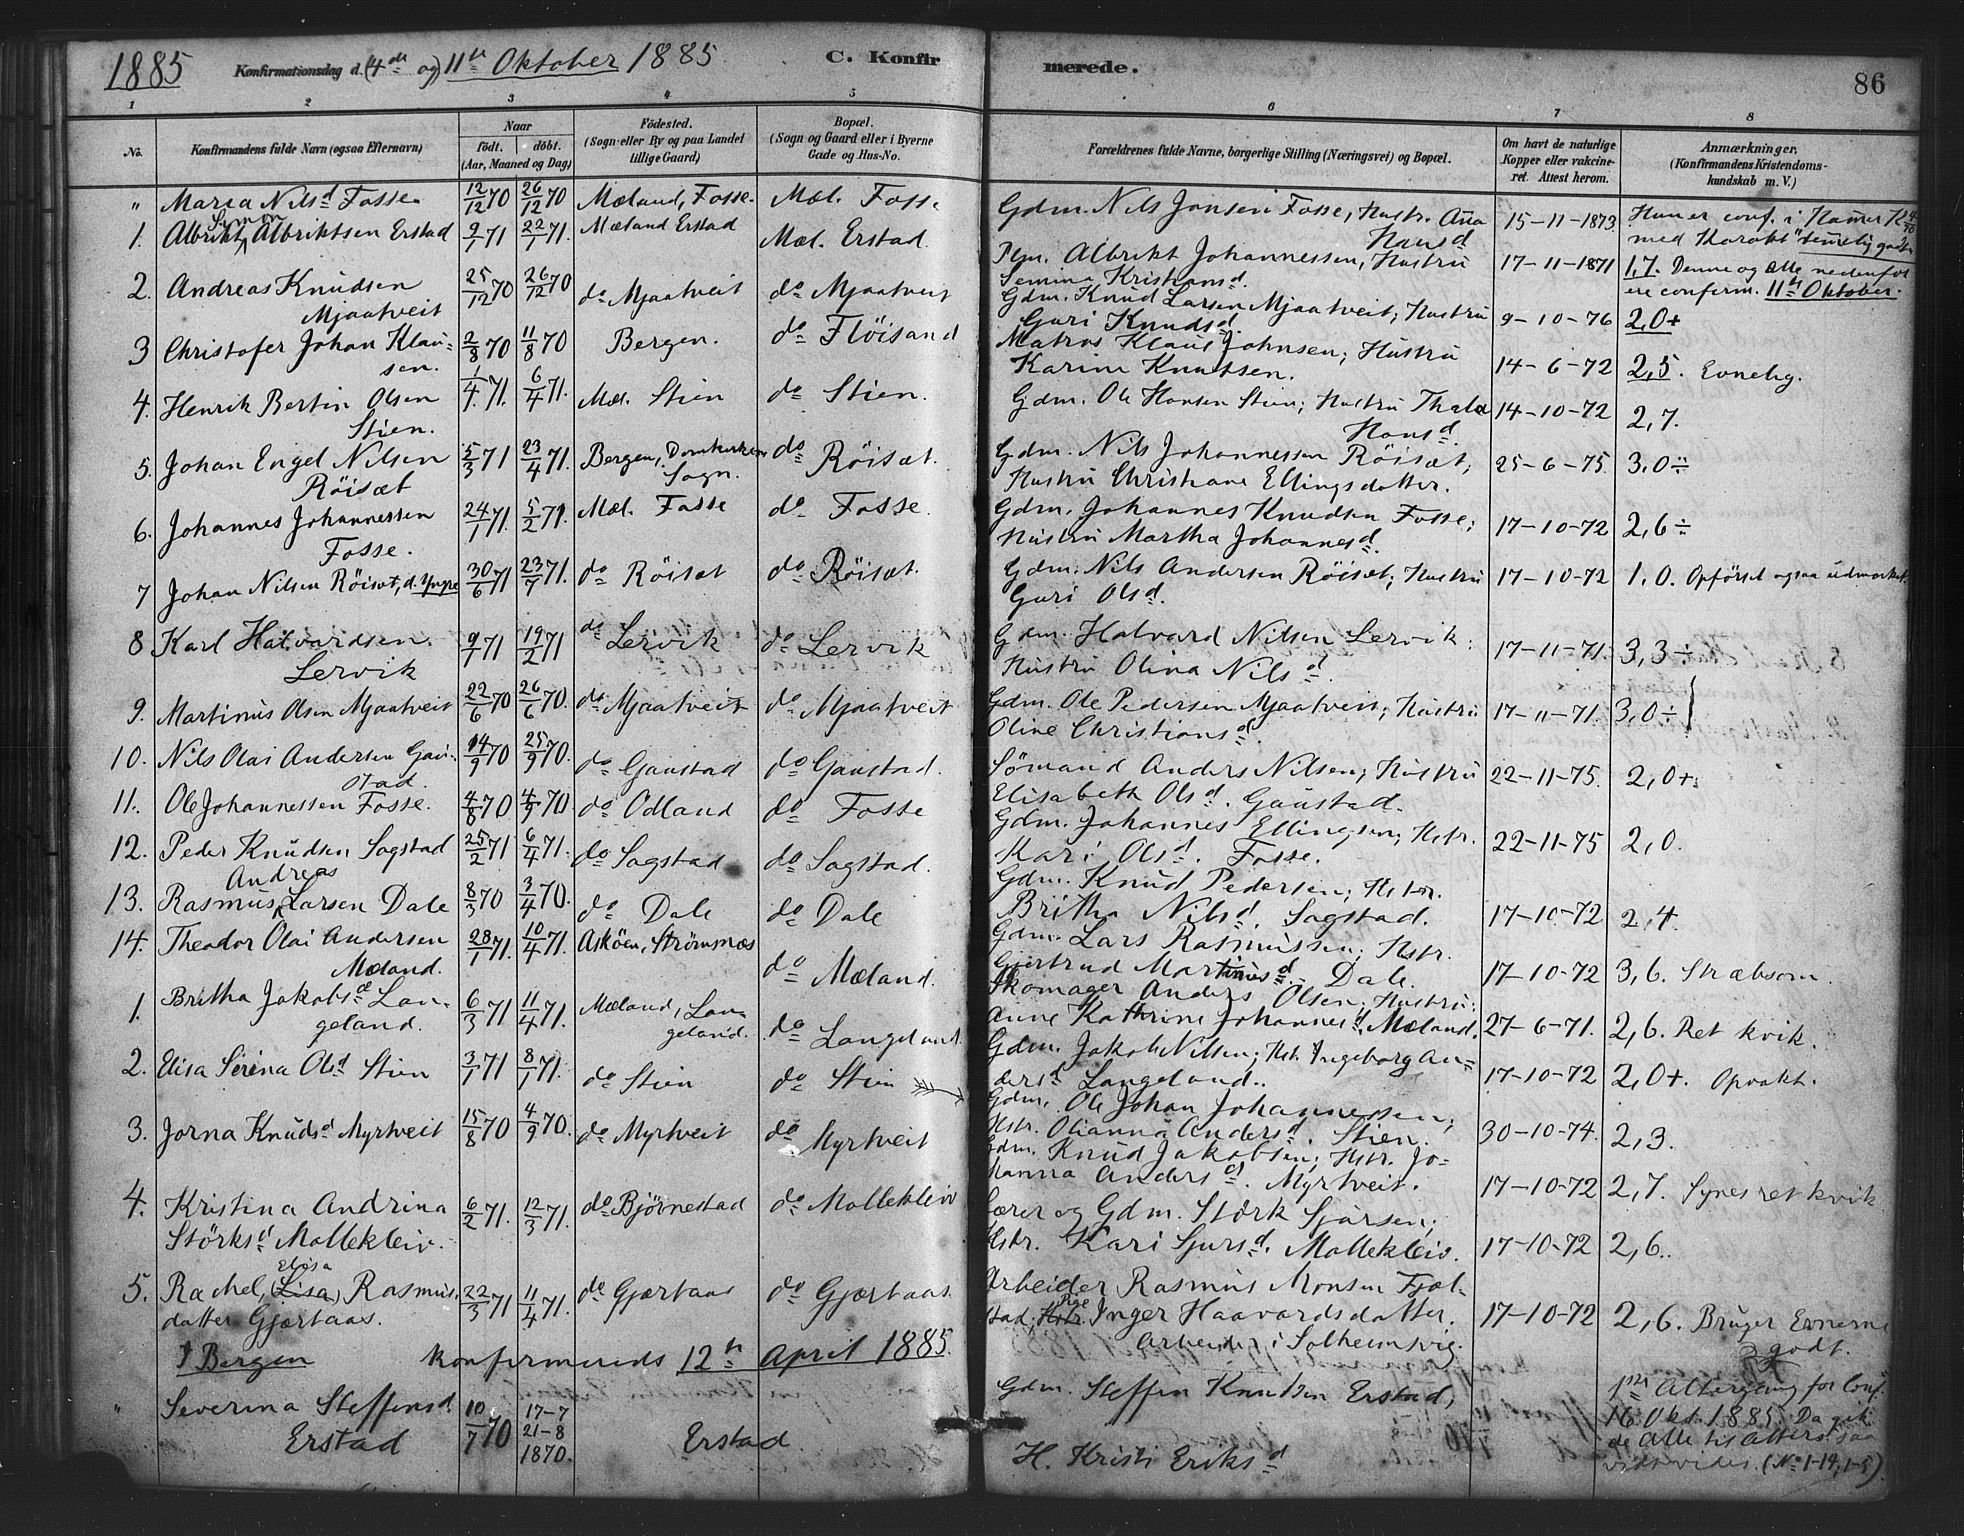 1885 Konfirmationsdag d. (4de og) 11te Oktober 1885. C. Konfirmerede. 86
1 2 3 4 5 6 7 8
No. Konfirmandens fulde Navn (ogsaa Efternavn) Naar født. døbt. (Aar, Maaned og Dag) Fødested. (Sogn eller By og paa Landet tillige Gaard) Bopæl. (Sogn og Gaard eller i Byerne Gade og Hus-No. Forældrenes fulde Navne, borgerlige Stilling (Næringsvei) og Bopæl. Om havt de naturlige Kopper eller vaccineret. Attest herom. Anmærkninger. (Konfirmandens Kristendomskundskab m. V.)
" Maria Nilsd Fosse 12/12 70 26/12 70 Mæland, Fosse. Mæl. Fosse Gdm. Nils Jonsen Fosse, Hustr. Ana Hansd 15-11-1873. Hun er conf. i Hamer K 4/10
med Karakt "temelig godt"
1. Albrikt Simon Albriktsen Erstad 9/1 71 22/1 71. Mæland Erstad Mæl. Erstad. Plm. Albrikt Johannessen, Hustru
Semina Kristiansd. 17-11-1871 1,7. Denne og alle nedenfor
ere conferm. 11te Oktober.
2. Andreas Knudsen
Mjaatveit 25/12 70 26/12 70 do Mjaatveit do Mjaatveit Gdm. Knud Larsen Mjaatveit; Hustru
Guri Knudsd. 9-10-76 2,0+
3 Christofer Johan Klau-
sen. 2/8 70 11/8 70 Bergen. do Fløisand Matros Klaus Johnsen; Hustru
Karine Knutsen. 14-6-72 2,5. Evnelig.
4. Henrik Bertin Olsen
Stien. 1/4 71. 6/4 71. Mæl. Stien do Stien. Gdm. Ole Hansen Stien; Hustru Thala
Hansd. 14-10-72 2,7.
5. Johan Engel Nilsen
Röisæt 5/3 71 23/4 71. Bergen, Domkirkens
Sogn. do Röisæt. Gdm. Nils Johannessen Röisæt,
Hustru Christiane Ellingsdatter. 25-6-75. 3,0÷
6. Johannes Johannessen
Fosse. 24/1 71. 5/2 71. Mæl. Fosse do Fosse. Gdm. Johannes Knudsen Fosse;
Hustru Martha Johannesd. 17-10-72 2,6÷
7 Johan Nilsen Röisæt, d. Yngre 30/6 71 23/7 71. do Röisæt do Röisæt. Gdm. Nils Andersen Röisæt; Hustru
Guri Olsd. 17-10-72 1,0. Opførsel ogsaa udmærket.
8 Karl Halvardsen
Lervik 9/1 71 19/2 71 do Lervik do Lervik Gdm. Halvard Nilsen Lervik.
Hustru Olina Nilsd. 17-11-71. 3,3÷
9. Martinus Olsen Mjaatveit 22/6 70 26/6 70. do Mjaatveit do Mjaatveit Gdm. Ole Pedersen Mjaatveit; Hustru
Oline Christiansd. 17-11-71. 3,0÷
10. Nils Olai Andersen Gau-
stad. 14/9 70 25/9 70. do Gaustad do Gaustad. Sømand Anders Nilsen; Hustru
Elisabeth Olsd. Gaustad. 22-11-75. 2,0+.
11. Ole Johannessen Fosse. 4/8 70 4/9 70 do Odland do Fosse Gdm. Johannes Ellingsen; Hstr.
Kari Olsd. Fosse. 22-11-75 2,0.
12. Peder Knudsen Sagstad 25/2 71 6/4 71. do Sagstad do Sagstad. Gdm. Knud Pedersen; Hstr.
Britha Nilsd. Sagstad. 17-10-72 2,4.
13. Rasmus Andreas Larsen Dale 8/3 70 3/4 70. do Dale do Dale Gdm. Lars Rasmussen; Hstr.
Gjertrud Martinusd. Dale. 17-10-72 3,6. Stræbsom.
14. Theodor Olai Andersen
Mæland. 28/1 71. 10/4 71. Askøen, Strømsnæs do Mæland. Skomager Anders Olsen; Hustru:
Anne Kathrine Johannesd. Mæland. 27-6-71. 2,6. Ret kvik.
1. Britha Jakobsd Lan-
geland. 6/3 71 11/4 71. Mæland, Lan-
geland. do Langeland. Gdm. Jakob Nilsen; Hstr. Ingeborg An-
dersd Langeland.. 17-10-72 2,0+. Opvakt.
2. Elisa Serina Olsd Stien 3/1 71 8/1 71. do Stien do Stien Gdm. Ole Johan Johannessen;
Hstr. Olianna Andersd. Stien. 30-10-74. 2,3.
3. Jorna Knudsd Myrtveit 15/8 70 4/9 70. do Myrtveit do Myrtveit Gdm. Knud Jakobsen; Hstr. Jo-
hanna Andersd. Myrtveit. 17-10-72 2,7. Synes ret kvik
4. Kristina Andrina
Størksd Mollekleiv. 6/2 71. 12/3 71. do Bjørnestad do Mollekleiv Lærer og Gdm. Størk Sjursen;
Hstr. Kari Sjursd. Mollekleiv. 17-10-72 2,6.
5. Rachel, Elisa (Lisa) Rasmus-
datter Gjærtaas. 22/3 71 11/4 71. do Gjærtaas do Gjærtaas. Arbeider Rasmus Monsen Fjæl-
stad; Hstr. Pige Inger Haavardsdatter.
Arbeider i Solheimsvig. 17-10-72 2,6. Bruger Evnerne
godt.
I Bergen konfirmereds 12te April 1885.
" Severina Steffensd.
Erstad 10/7 70 17-7
21-8
1870. Erstad. Gdm. Steffen Knutsen Erstad,
H. Kristi Eriksd 1ste Altergang for Conf.
16 Okt. 1885. Da gik
de alle til Alters saa
vidt vides. (No 1-14, 1-5).